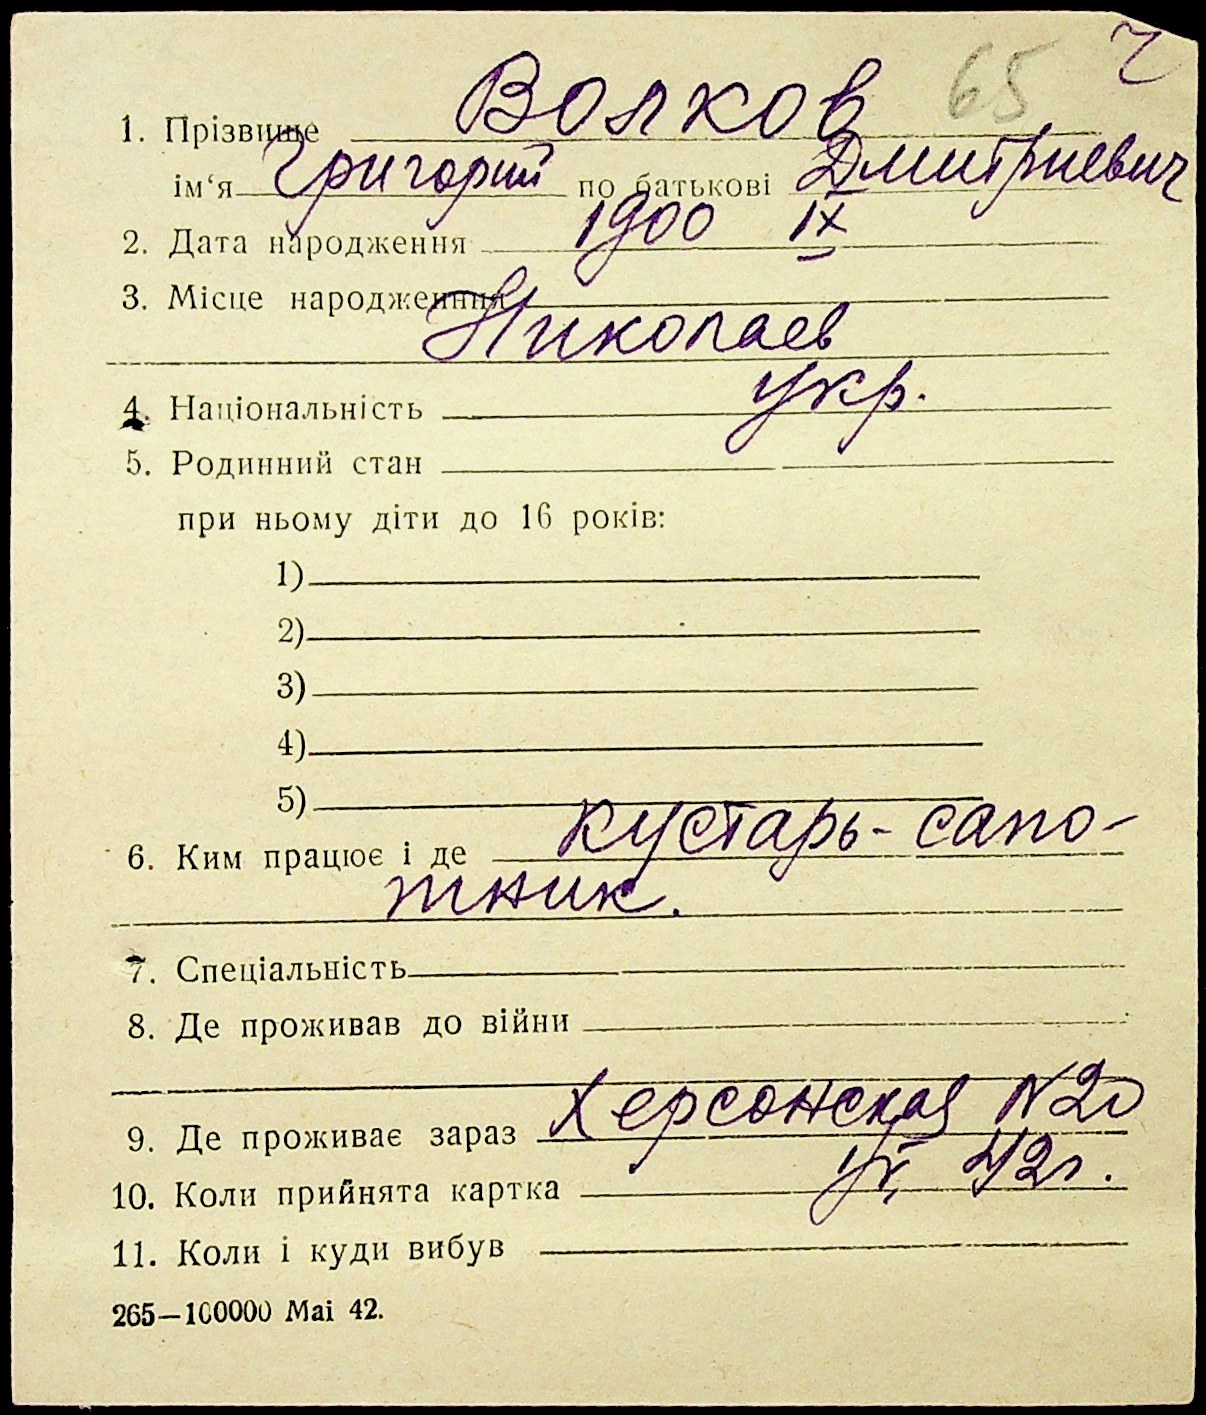 65
1. Прізвище Волков
ім‘я Григорий по батькові Дмитриевич
2. Дата народження 1900 IX
3. Місце народження
Николаев
4. Національність укр.
5. Родинний стан
при ньому діти до 16 років:
1)
2)
3)
4)
5)
6. Ким працює і де кустарь-сапо-
жник.
7. Спеціальність
8. Де проживав до війни
9. Де проживає зараз Херсонская N 20
10. Коли прийнята картка 42г.
11. Коли і куди вибув
265—100000 Mai 42.